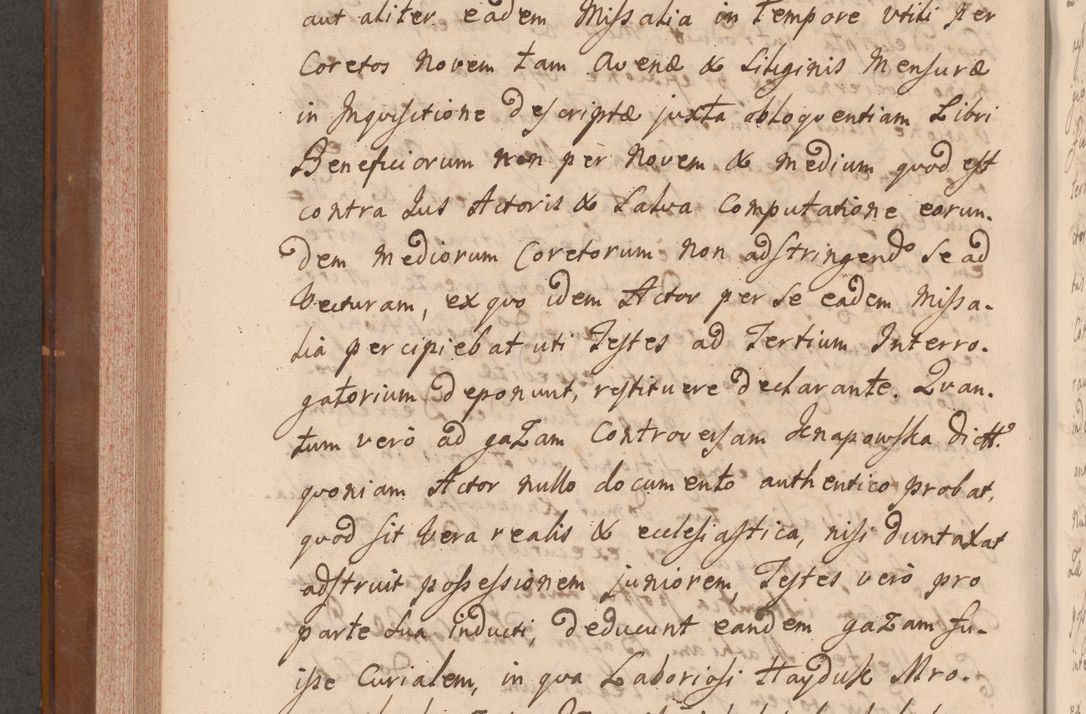 aut aliter eadem Missalia in Tempore utili per
Coretos Novem tam Avenæ & Siliginis Mensuræ
in Inquisitione descriptæ juxta obloquentiam Libri
Beneficiorum non per Novem & medium quod est
contra Jus Actoris & Salva Computatione eorun.
dem mediorum Coretorum non adstringendo se ad
Vecturam, ex quo idem Actor per se eadem Missa.
lia percipiebat uti Testes ad Tertium Interro.
gatorium deponunt, restituere declarante. Quan.
tum verò ad gazam Controversam Knapowska dictt.
quoniam Actor nullo documento authentico probat,
quod sit Vera realis & ecclesiastica, nisi duntaxat
adstruit possessionem juniorem, Testes verò pro
parte sua inducti, deducunt eandem gazam fu.
isse Curialem, in qua Laboriosi Hayduk Mro.